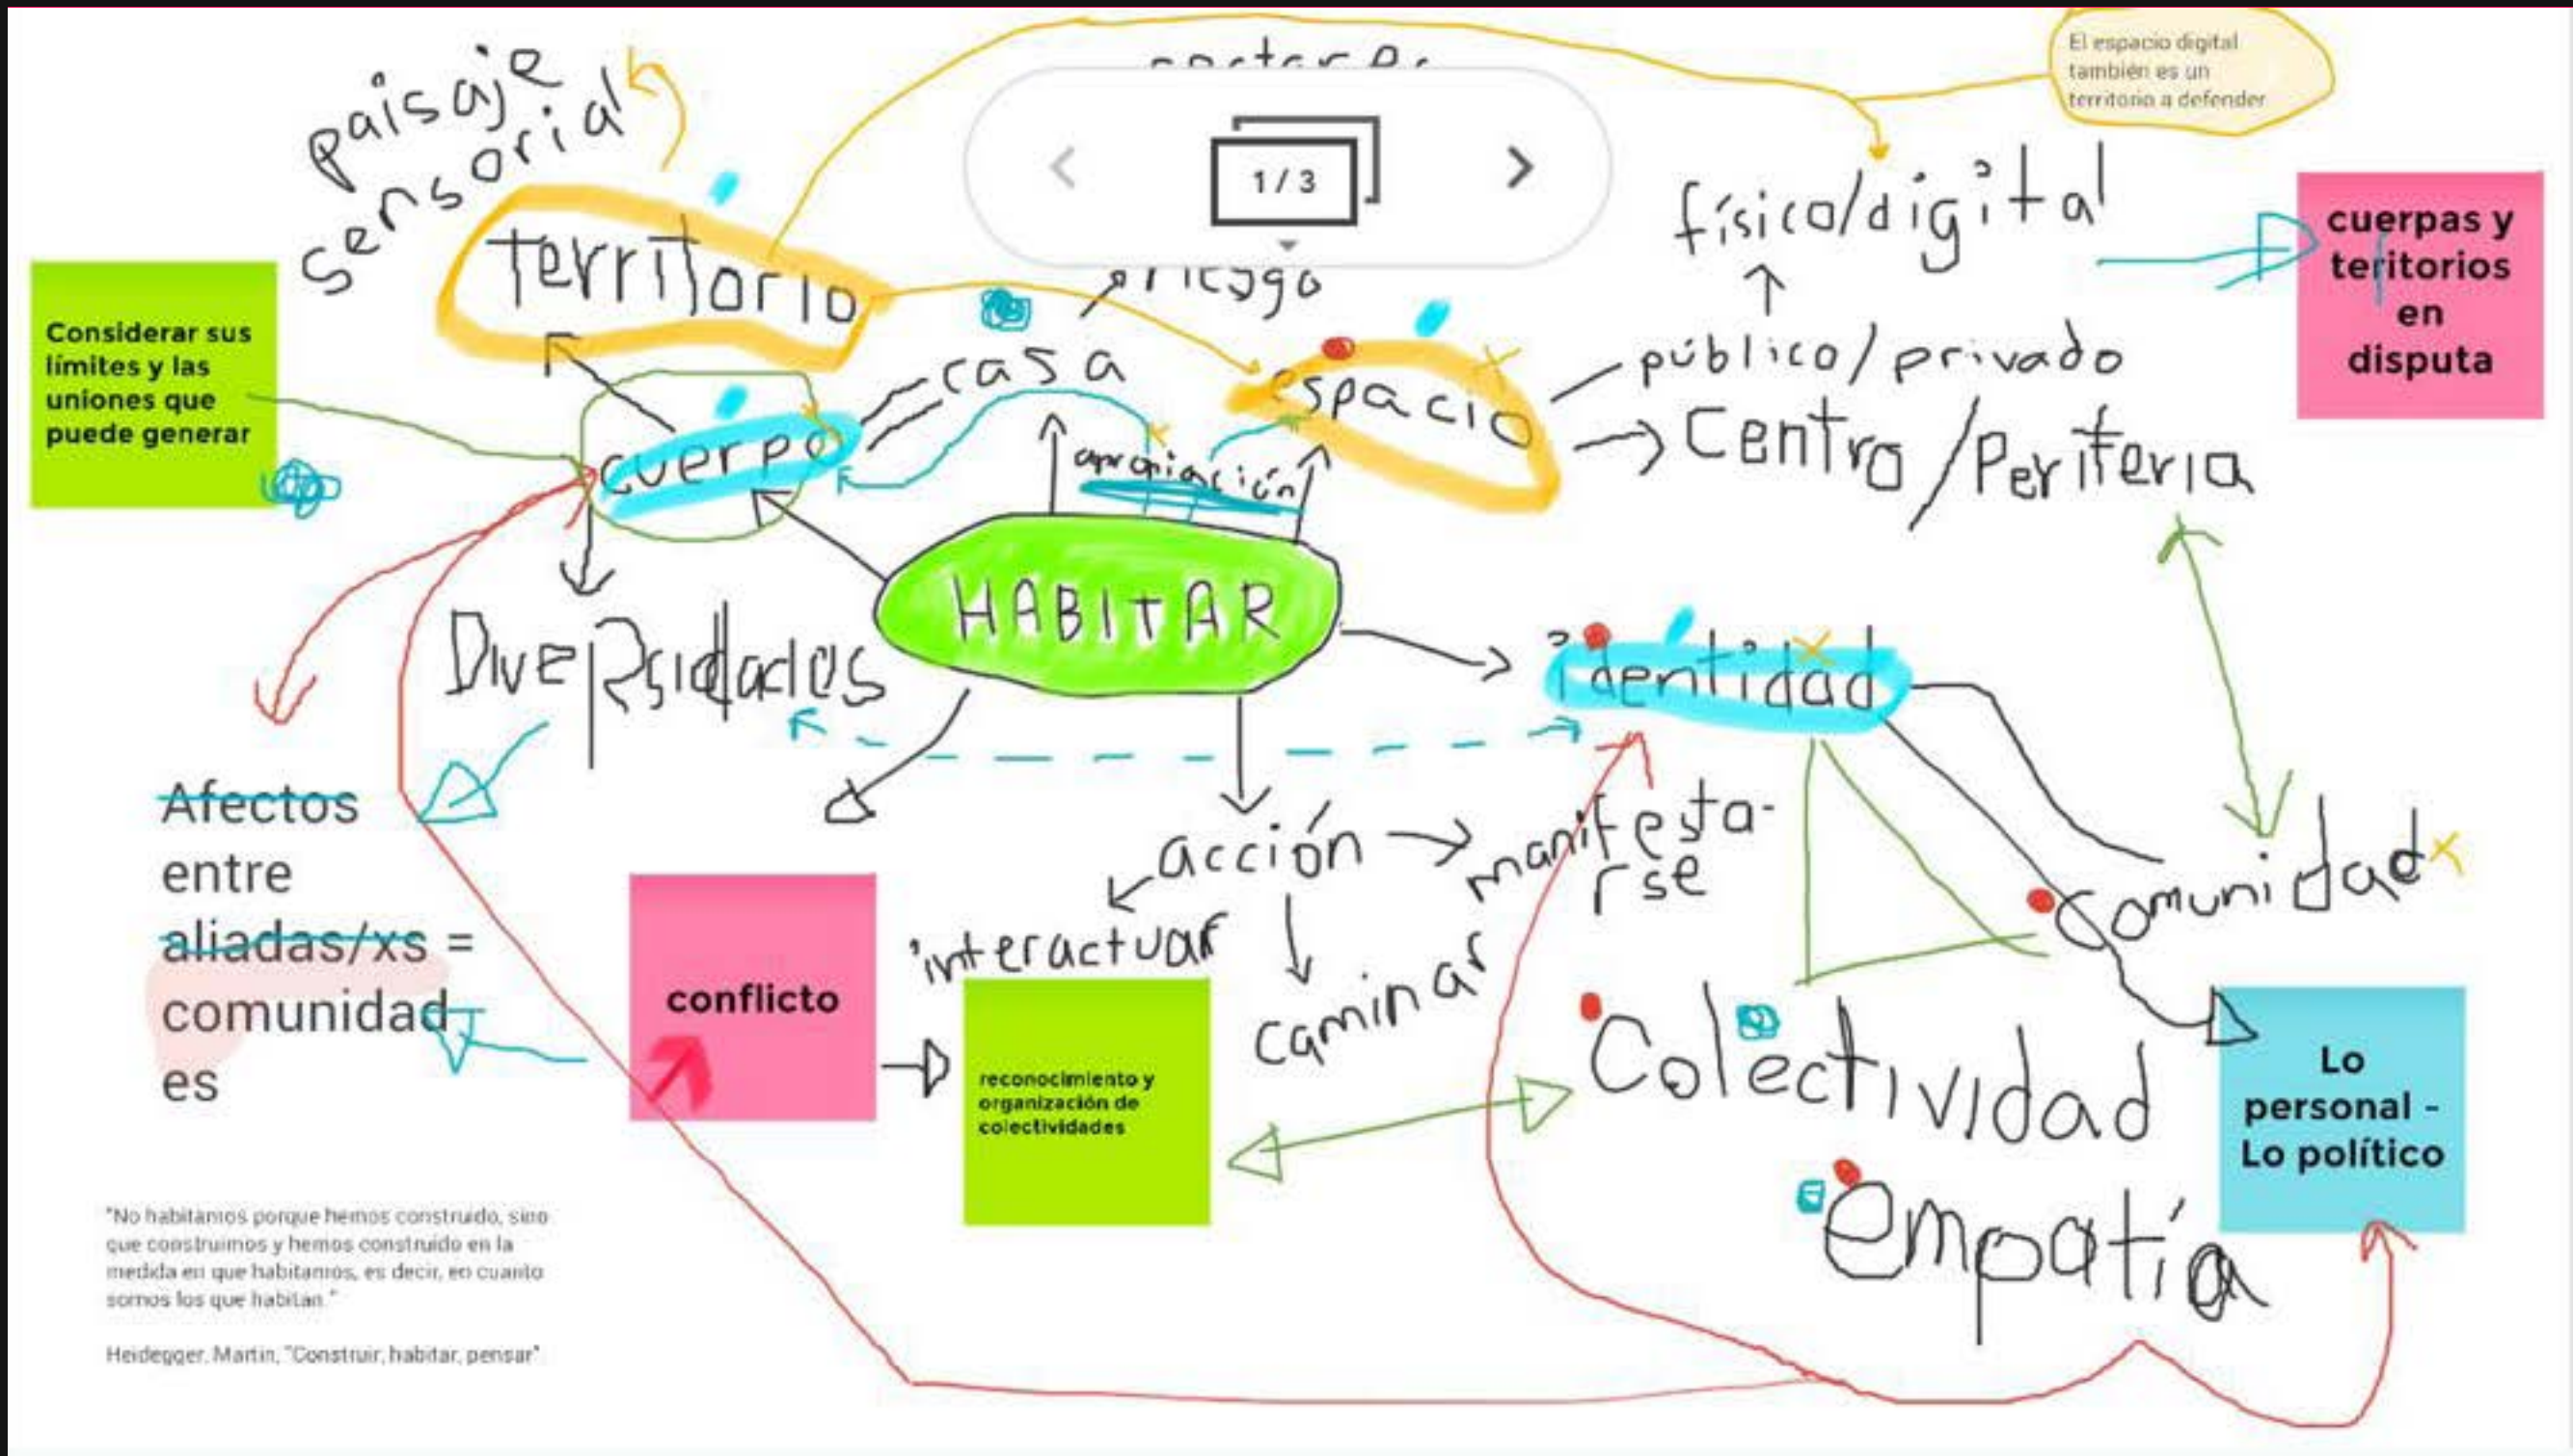 El espacio digital
también es un
territorio a defender
paisaje
sensorial
1 / 3
territorio
riesgo
físico/digital
cuerpas y
teritorios
en
disputa
Considerar sus
límites y las
uniones que
puede generar
casa
espacio
público/privado
cuerpo
apropiación
Centro/Periferia
HABITAR
Diversidades
identidad
Afectos
entre
aliadas/xs =
comunidad
es
acción
manifesta-
rse
interactuar
caminar
comunidad
conflicto
reconocimiento y
organización de
colectividades
Colectividad
Lo
personal -
Lo político
empatía
"No habitamos porque hemos construido, sino
que construimos y hemos construido en la
medida en que habitamos, es decir, en cuanto
somos los que habitan."
Heidegger, Martin, "Construir, habitar, pensar"